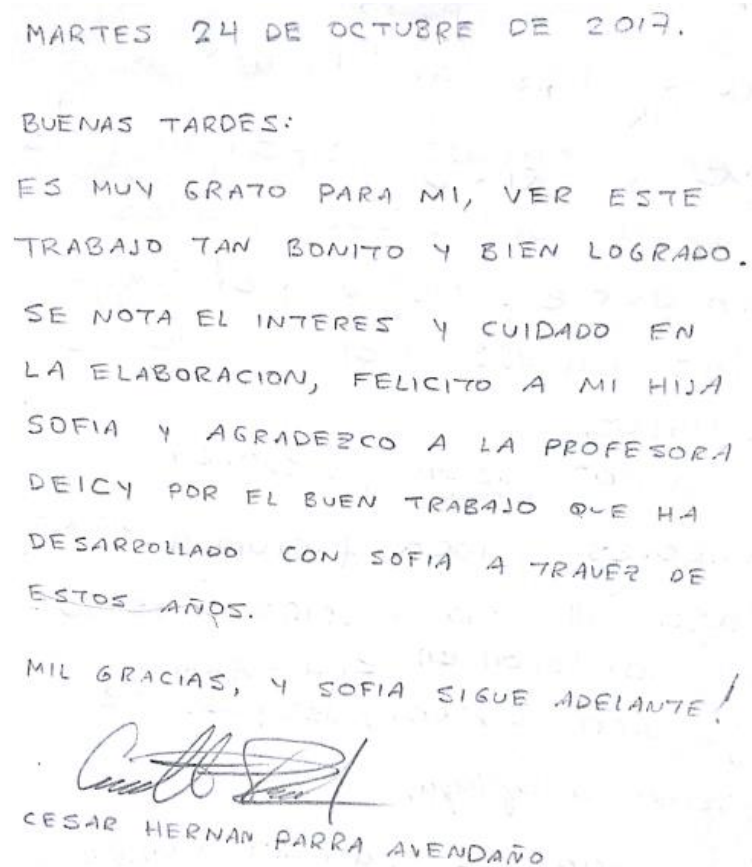 MARTES 24 DE OCTUBRE DE 2017.
BUENAS TARDES:
ES MUY GRATO PARA MI, VER ESTE
TRABAJO TAN BONITO Y BIEN LOGRADO.
SE NOTA EL INTERES Y CUIDADO EN
LA ELABORACION, FELICITO A MI HIJA
SOFIA Y AGRADEZCO A LA PROFESORA
DEICY POR EL BUEN TRABAJO QUE HA
DESARROLLADO CON SOFIA A TRAVEZ DE
ESTOS AÑOS.
MIL GRACIAS, Y SOFIA SIGUE ADELANTE!
CESAR HERNAN PARRA AVENDAÑO